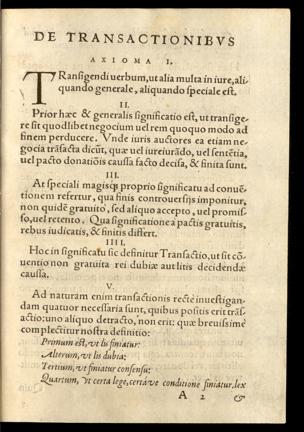 DE TRANSACTIONIBVS
AXIOMA I.
TRansigendi uerbum, ut alia multa in iure, ali-
quando generale, aliquando speciale est.
II.
Prior hæc & generalis significatio est, ut transige-
re sit quodlibet negocium uel rem quoquo modo ad
finem perducere. Vnde iuris auctores ea etiam ne-
gocia trãsacta dicũt, quæ uel iureiurãdo, uel sentẽtia,
uel pacto donatiõis caussa facto decisa, & finita sunt.
III.
At speciali magisq́; proprio significatu ad conuẽ-
tionem refertur, qua finis controuersijs imponitur,
non quidẽ gratuito, sed aliquo accepto, uel promis-
so, uel retento. Qua significatione a pactis gratuitis,
rebus iudicatis, & finitis differt.
IIII.
Hoc in significatu sic definitur Transactio, ut sit cõ-
uentio non gratuita rei dubiæ aut litis decidendæ
caussa.
V.
Ad naturam enim transactionis rectè inuestigan-
dam quatuor necessaria sunt, quibus positis erit trãs-
actio: uno aliquo detracto, non erit: quæ breuissimè
complectitur nostra definitio:
Primum est, ut lis finiatur:
Alterum, ut lis dubia:
Tertium, ut finiatur consensu:
Quartum, ut certa lege, certáve conditione finiatur, lex
A 2 &